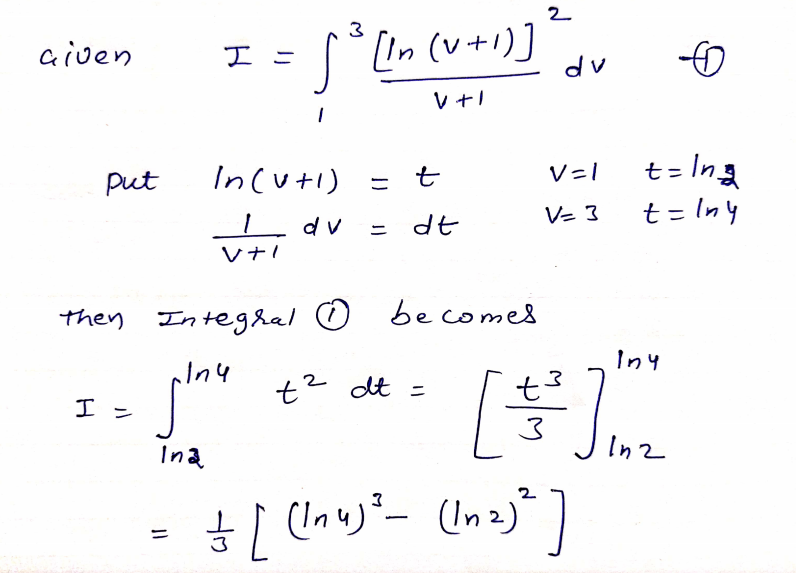 Given I = ∫₁³ [ln (v+1)]² / v+1 dv –①
put ln(v+1) = t v=1 t=ln2
1/v+1 dv = dt v=3 t=ln4
then Integral ① becomes
I = ∫_{ln2}^{ln4} t² dt = [t³/3]_{ln2}^{ln4}
= 1/3 [ (ln4)³ – (ln2)² ]